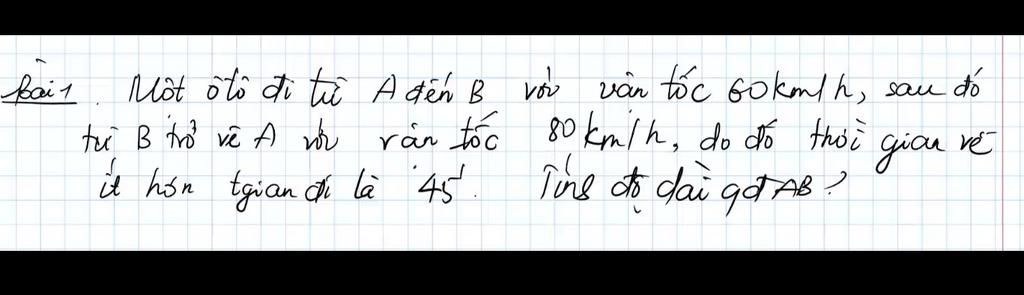 Bài 1. Một ôtô đi từ A đến B với vận tốc 60km/h, sau đó
từ B trở về A với vận tốc 80km/h, do đó thời gian về
ít hơn tgian đi là 45'. Tính độ dài qđ AB?